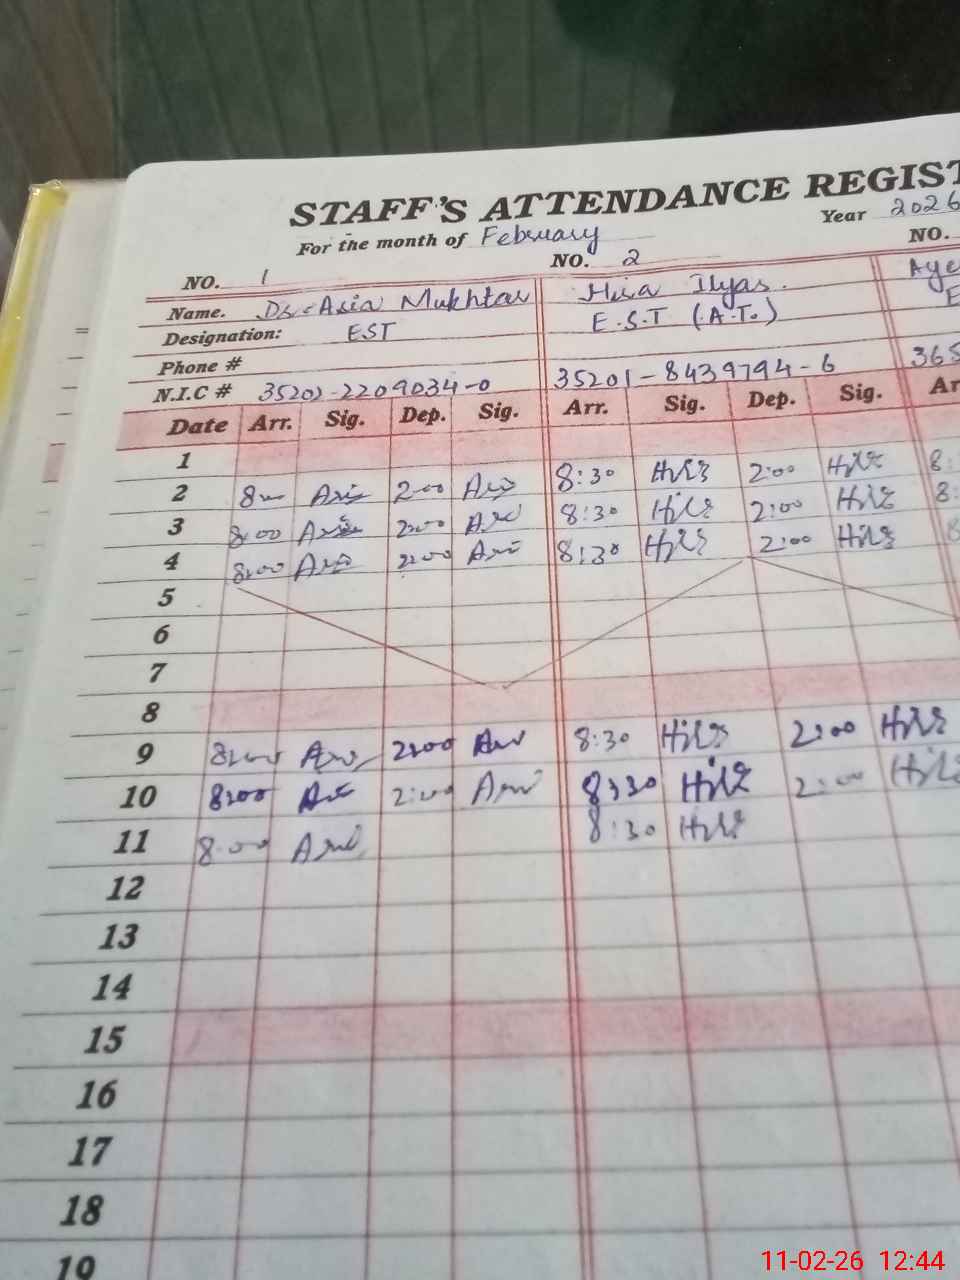 STAFF'S ATTENDANCE REGIST
For the month of February Year 2026
NO. 1 NO. 2 NO.
Name. Dr. Asia Mukhtar Hira Ilyas. Aye
Designation: EST E.S.T (A.T.) E
Phone #
N.I.C # 35202-2209034-0 35201-8439794-6 365
Date Arr. Sig. Dep. Sig. Arr. Sig. Dep. Sig. Ar
1
2 8:00 2:00 8:30 2:00 8:
3 8:00 2:00 8:30 2:00 8:
4 8:00 2:00 8:30 2:00 8
5
6
7
8
9 8:00 2:00 8:30 2:00
10 8:00 2:00 8:30 2:00
11 8:00 8:30
12
13
14
15
16
17
18
19
11-02-26 12:44